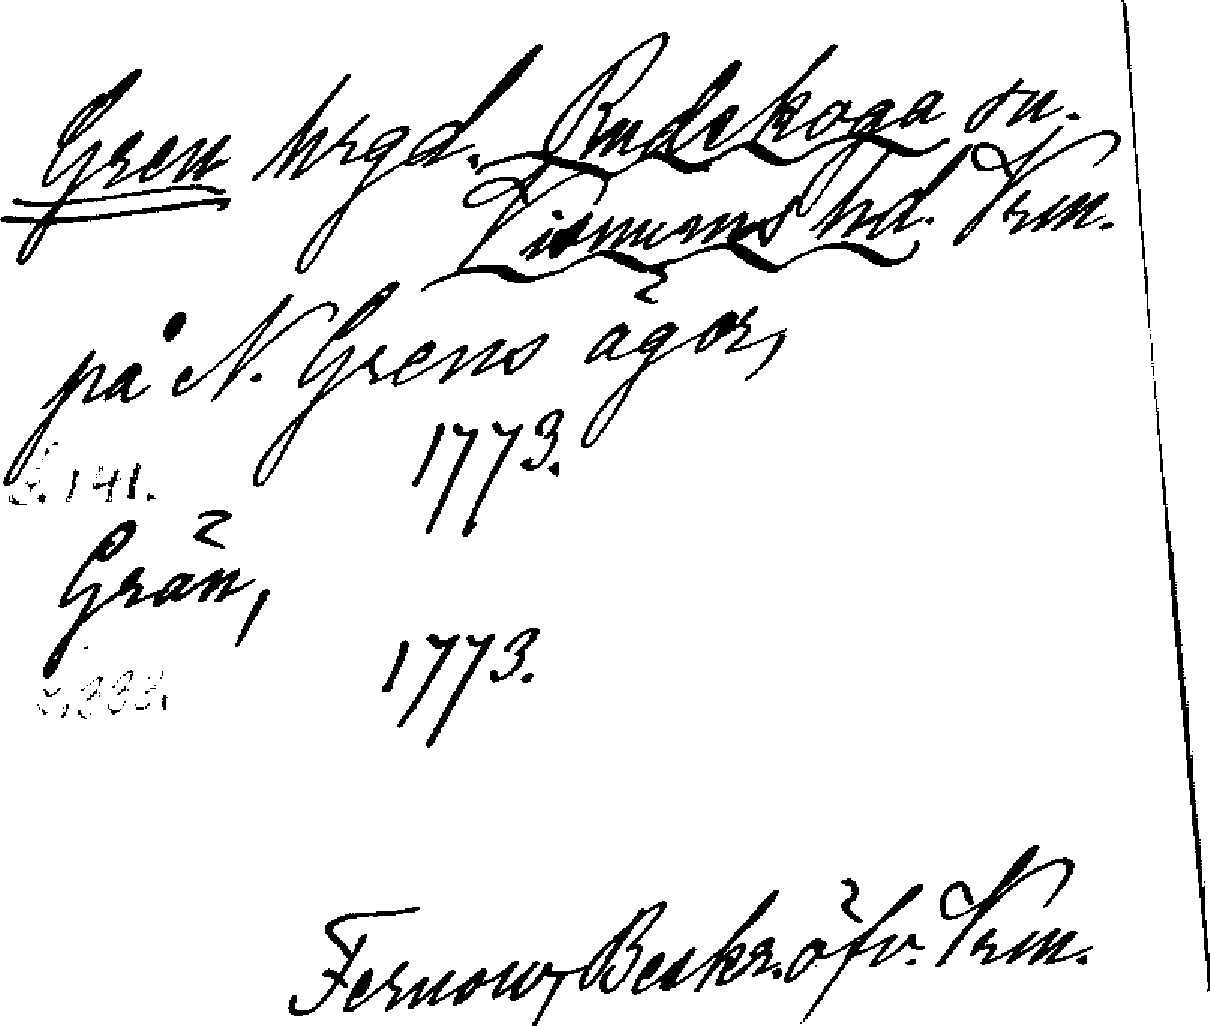 Gren hrgd. Rudskoga sn.
Visnums hd. Vrm.
på N. Grens ägor,
1773.
S. 141.
Grän,
1773.
S. 333.
Fernow, Beskr. öfv. Vrm.